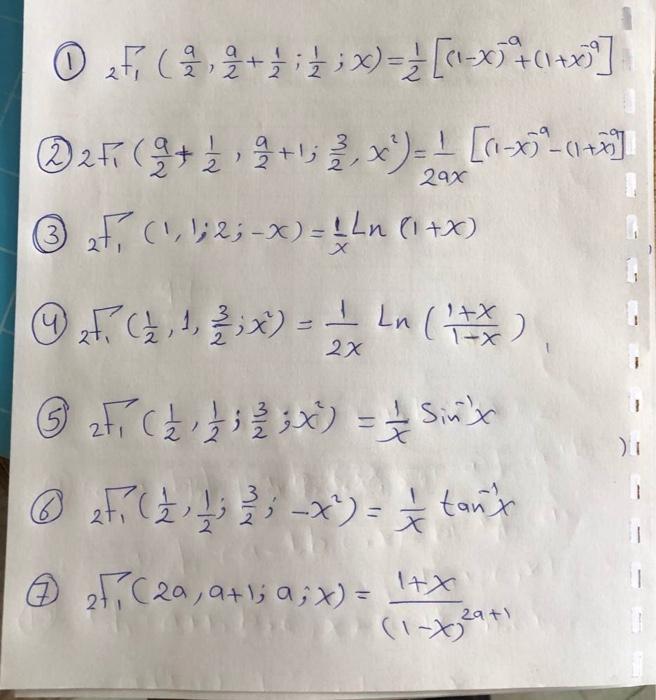 ① ₂F₁ (a/2, a/2 + 1/2; 1/2; x) = 1/2 [(1-x)⁻ᵃ + (1+x)⁻ᵃ]
② ₂F₁ (a/2 + 1/2, a/2 + 1; 3/2, x²) = 1/2ax [(1-x)⁻ᵃ - (1+x)⁻ᵃ]
③ ₂F₁ (1, 1; 2; -x) = 1/x Ln (1+x)
④ ₂F₁ (1/2, 1, 3/2; x²) = 1/2x Ln (1+x/1-x)
⑤ ₂F₁ (1/2, 1/2; 3/2; x²) = 1/x Sin⁻¹x
⑥ ₂F₁ (1/2, 1/2; 3/2; -x²) = 1/x tan⁻¹x
⑦ ₂F₁ (2a, a+1; a; x) = 1+x/(1-x)²ᵃ⁺¹